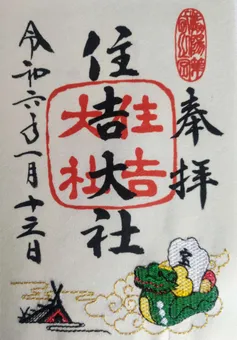 奉拝
住吉大社
住吉大社
令和六年一月十三日